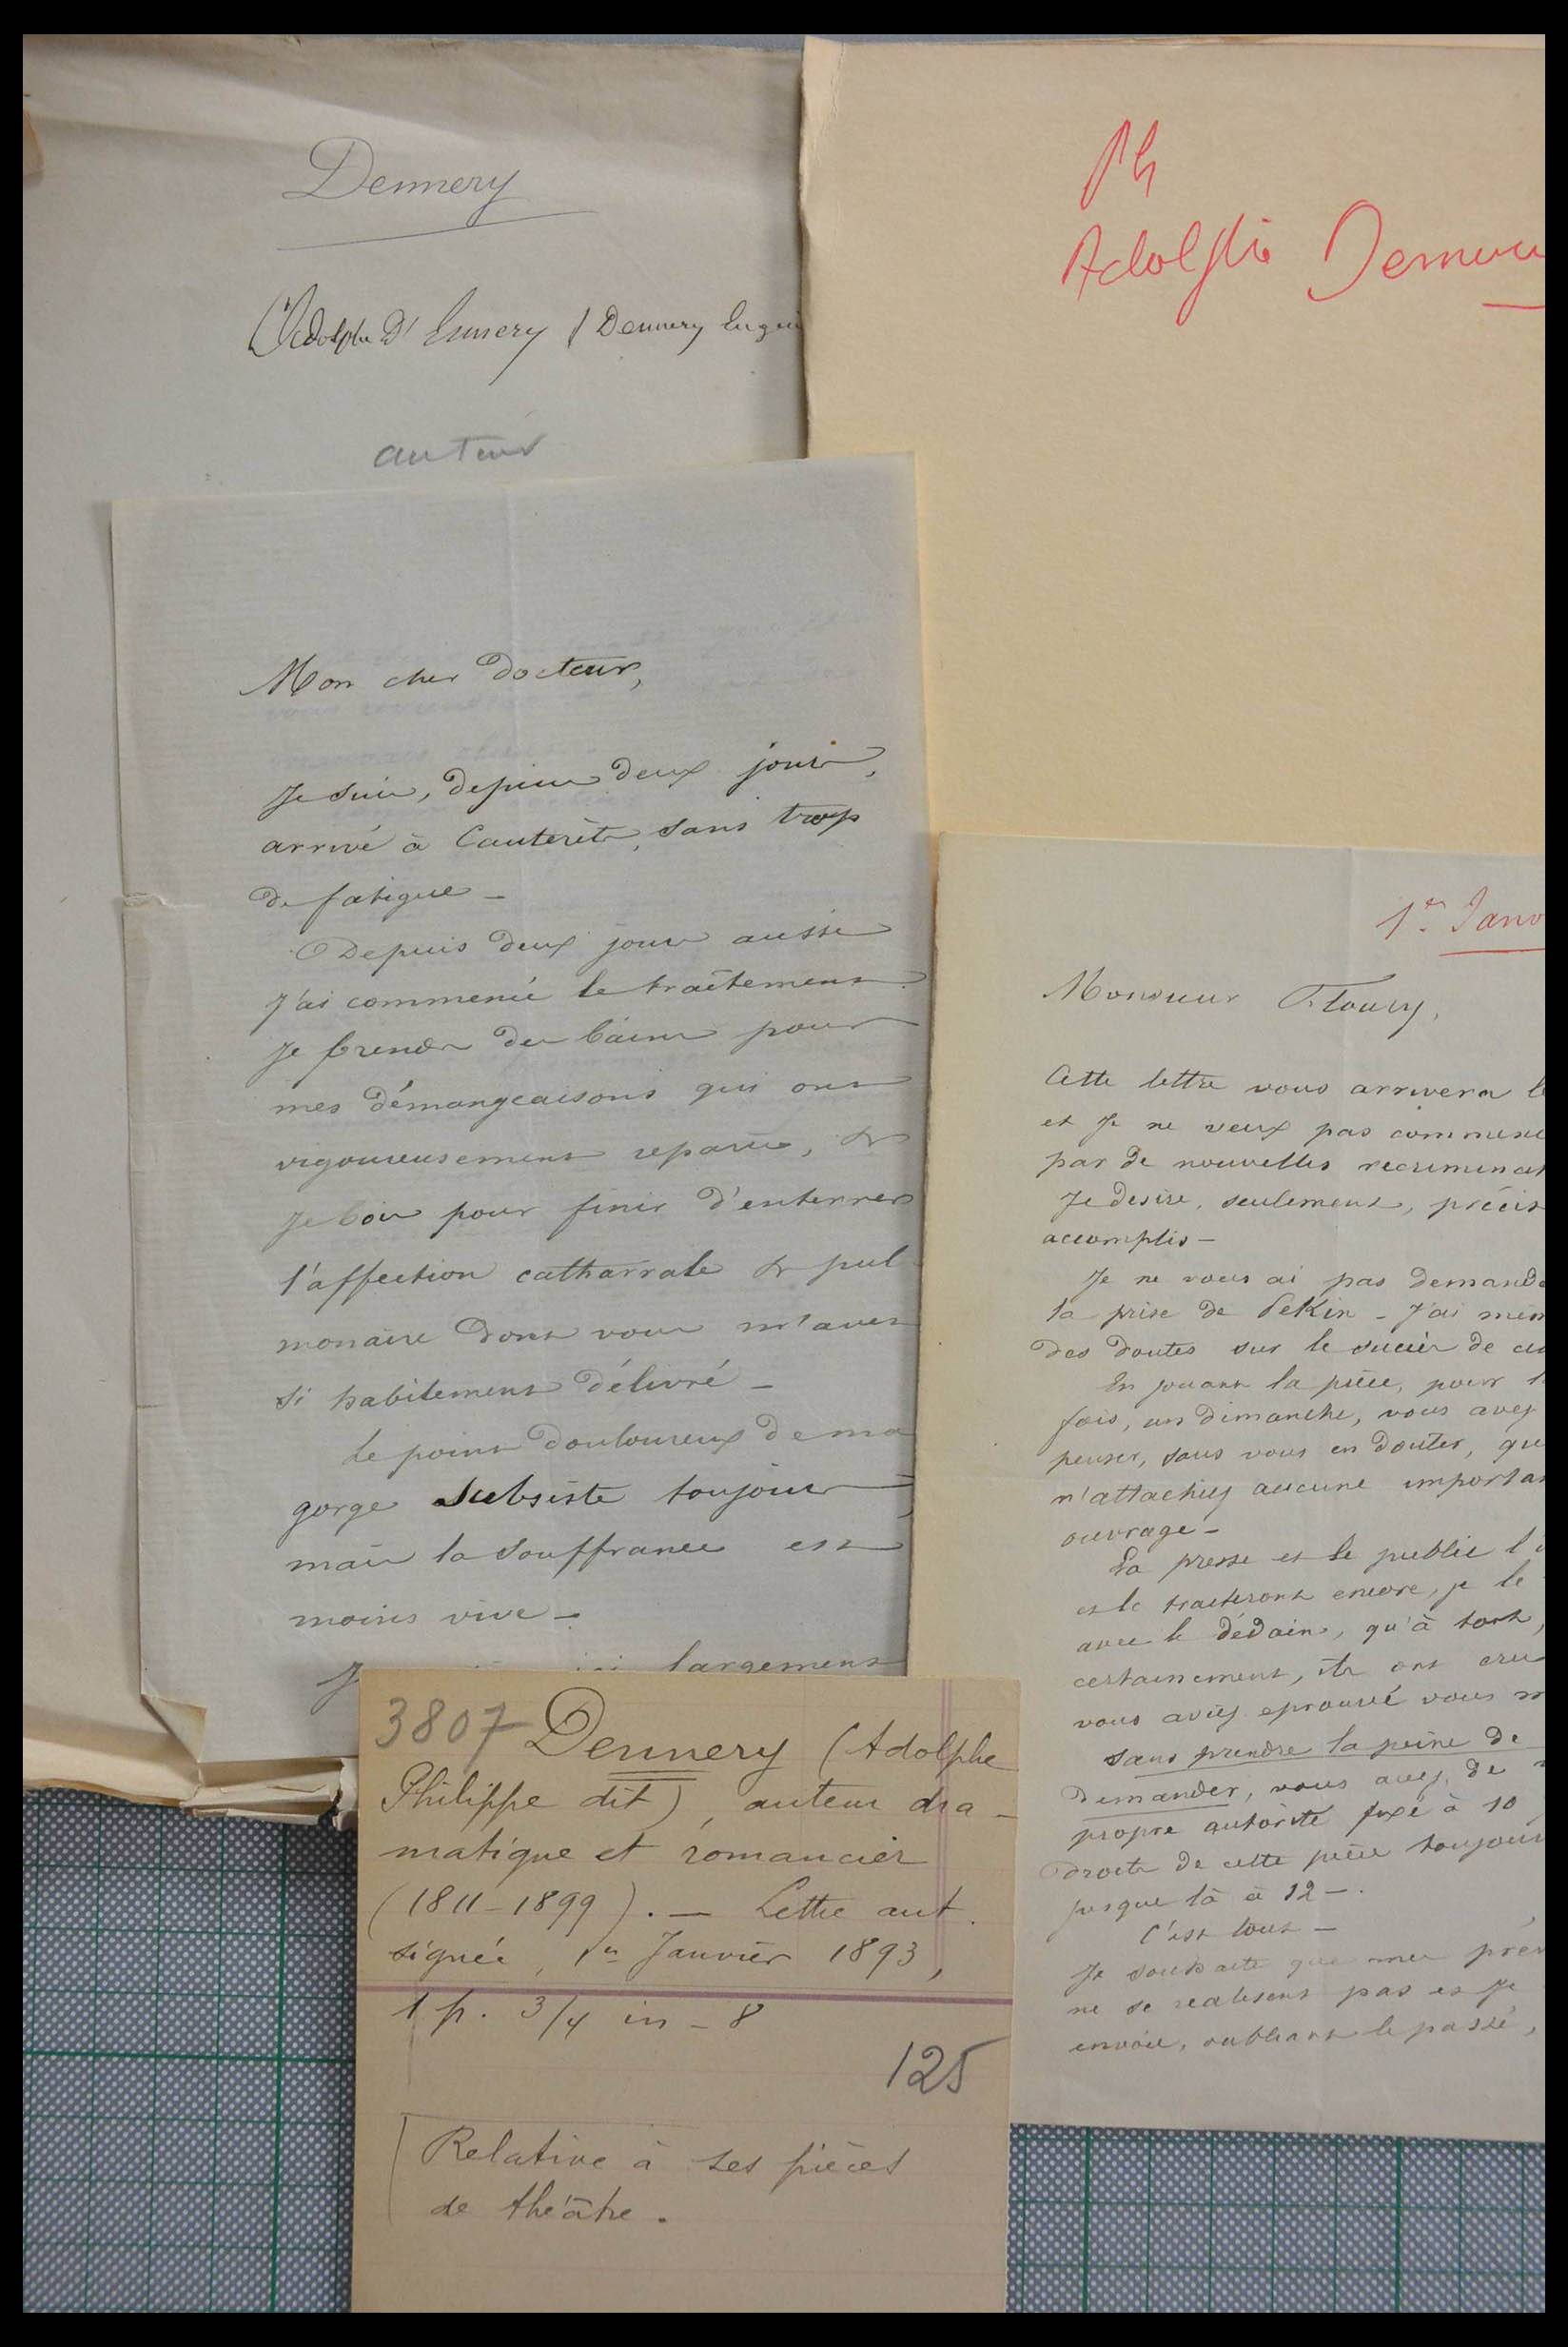 Dennery
(Adolphe D'Ennery / Dennery Eugè
auteur
Ph
Adolphe Denner
Mon cher Docteur,
Je suis, depuis deux jours,
arrivé à Cauterets, sans trop
de fatigue —
Depuis deux jours aussi
J'ai commencé le traitement.
Je prends des bains pour
mes démangeaisons qui ont
vigoureusement reparu, &
Je bois pour finir d'enterrer
l'affection catharrale & pul
monaire dont vous m'avez
si habilement délivré —
Le point douloureux de ma
gorge subsiste toujours,
mais la souffrance est
moins vive —
largement
1er Janv
Monsieur Floury,
Cette lettre vous arrivera l
et je ne veux pas commenc
par de nouvelles recriminat
Je desire, seulement, précis
accomplis —
Je ne vous ai pas demandé
la prise de Pekin — J'ai mêm
des doutes sur le succès de ce
En jouant la pièce, pour l
fois, un dimanche, vous avez
penser, sans vous en douter, que
n'attachiez aucune importan
ouvrage —
La presse et le public l
et le traiteront encore, je le
avec le dédain, qu'à tort,
certainement, ils ont cru
vous aviez eprouvé vous m
sans prendre la peine de
demander, vous avez, de
propre autorité fixé à 10
droits de cette pièce toujours
jusque là à 12 —.
C'est tout —
Je souhaite que mes prév
ne se realisent pas et je
envoie, oubliant le passé,
3807 Dennery (Adolphe
Philippe dit), auteur dra-
matique et romancier
(1811-1899). — Lettre aut.
signée, 1er Janvier 1893,
1 p. 3/4 in-8
125
Relative à ses pièces
de théâtre.